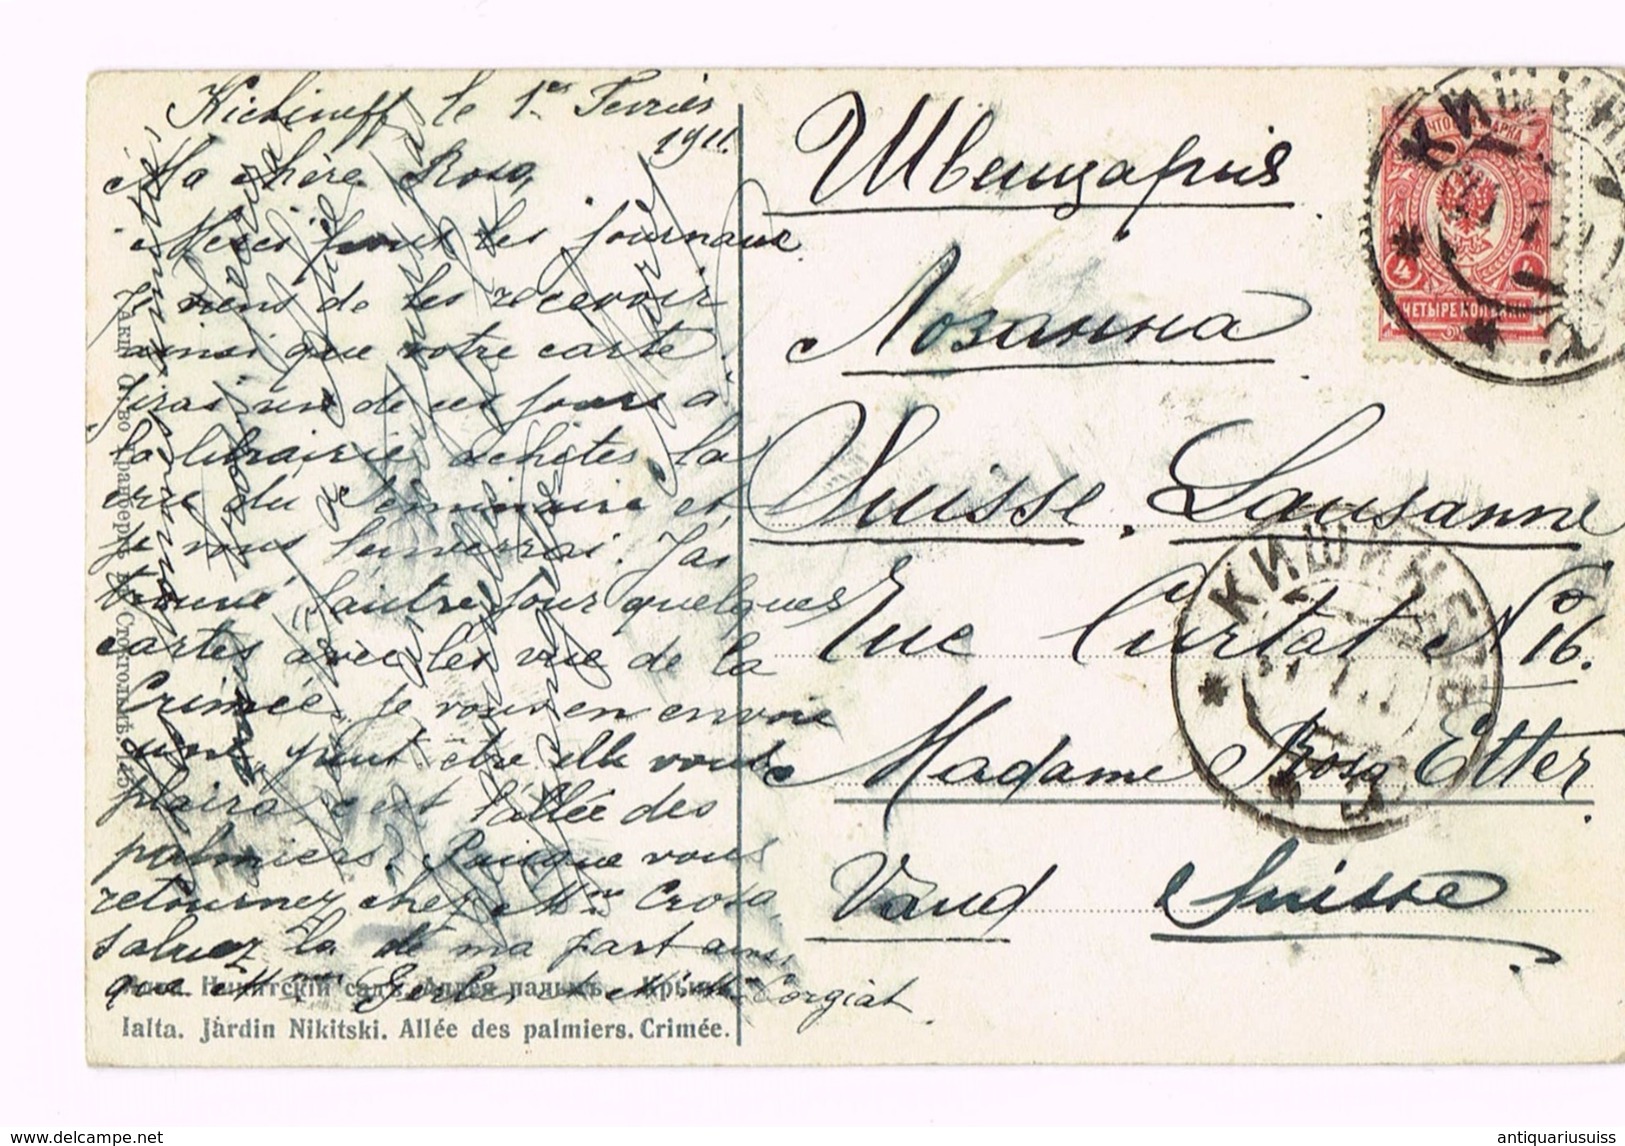 Kichineff le 1er Fevrier
1911.
Ma chère Rosa,
Merci pour les journaux
Je viens de les recevoir
ainsi que votre carte.
J'irai un de ces jours à
la librairie achéter la
vue du Séminaire et
je vous l'enverrai. J'ai
trouvé l'autre jour quelques
cartes avec les vue de la
Crimée, je vous en envoie
une, peut être elle vous
plaira c'est l'allée des
palmiers. Puisque vous
retournez chez Mme Crosa,
saluez la de ma part ainsi
que Corgiat
Никитскій садъ. Аллея пальмъ. Крымъ.
Ialta. Jardin Nikitski. Allée des palmiers. Crimée.
Акц. О-во Гранбергъ въ Стокгольмѣ.
Швейцарія
Лозанна
Suisse. Lausanne
Rue Curtat No 16.
Madame Rosa Etter.
Vaud Suisse
ПОЧТОВАЯ МАРКА
4 4
ЧЕТЫРЕ КОПѢЙКИ
КИШИНЕВЪ
КИШИНЕВЪ
antiquariusuiss